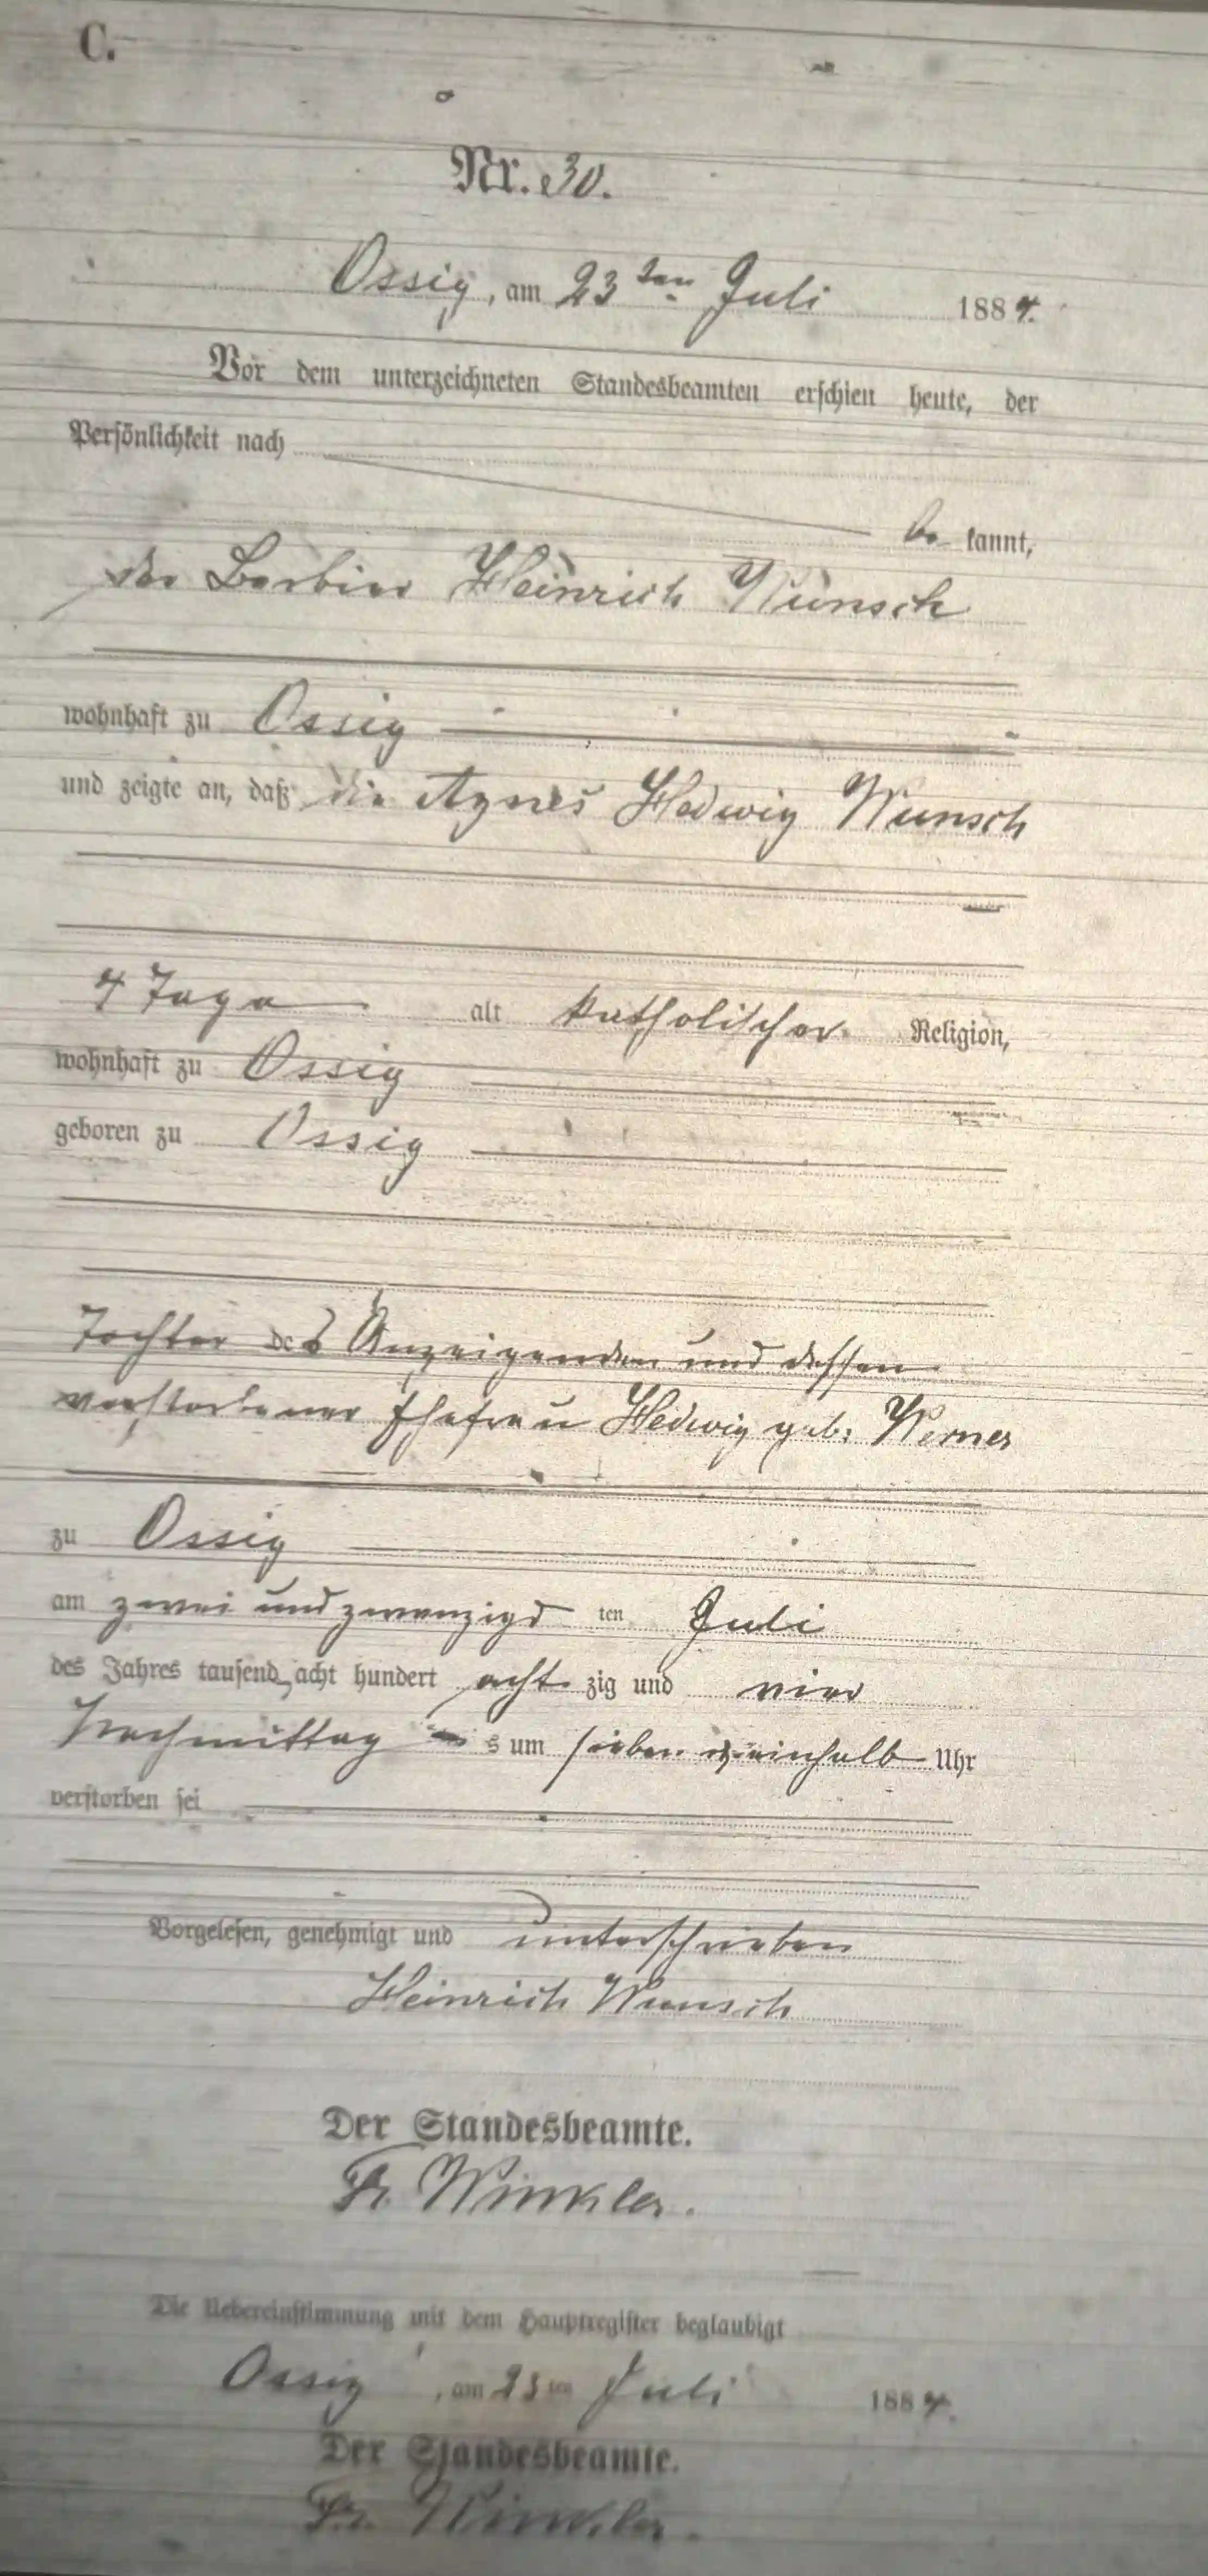 C.
Nr. 30.
Ossig, am 23ten Juli 1884.
Vor dem unterzeichneten Standesbeamten erschien heute, der
Persönlichkeit nach
be kannt,
der Barbier Heinrich Wunsch
wohnhaft zu Ossig
und zeigte an, daß die Agnes Hedwig Wunsch
4 Tage alt katholischer Religion,
wohnhaft zu Ossig
geboren zu Ossig
Tochter des Anzeigenden und dessen
verstorbener Ehefrau Hedwig geb. Werner
zu Ossig
am zwei und zwanzigs ten Juli
des Jahres tausend acht hundert acht zig und vier
Nachmittag s um sieben einhalb Uhr
verstorben sei
Vorgelesen, genehmigt und unterschrieben
Heinrich Wunsch
Der Standesbeamte.
Fr. Winkler.
Die Uebereinstimmung mit dem Hauptregister beglaubigt
Ossig, am 23ten Juli 1884.
Der Standesbeamte.
Fr. Winkler.